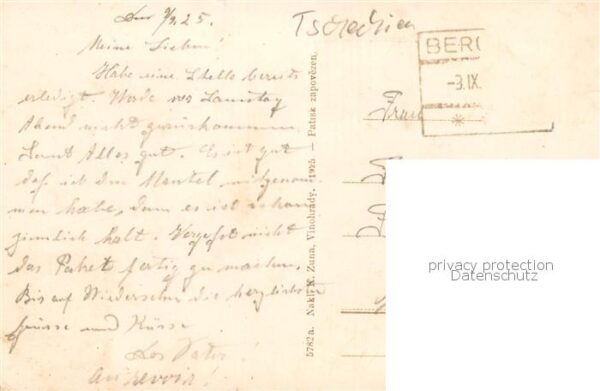 9/9. 25.
Meine Lieben!
Habe eine Stelle bereits
erledigt. Werde vor Samstag
Abend nicht zurückkommen
Sonst Alles gut. Es ist gut
daß ich den Mantel mitgenom-
men habe, denn es ist schon
ziemlich kalt. Vergeßt nicht
das Paket fertig zu machen.
Bis auf Wiedersehn die herzlichsten
Grüsse und Küsse
Vater!
Au revoir!
Tschechien
5782a. Nakl. K. Zuna, Vinohrady. 1925 — Patisk zapovězen.
BER
-3.IX.
Frau
privacy protection
Datenschutz